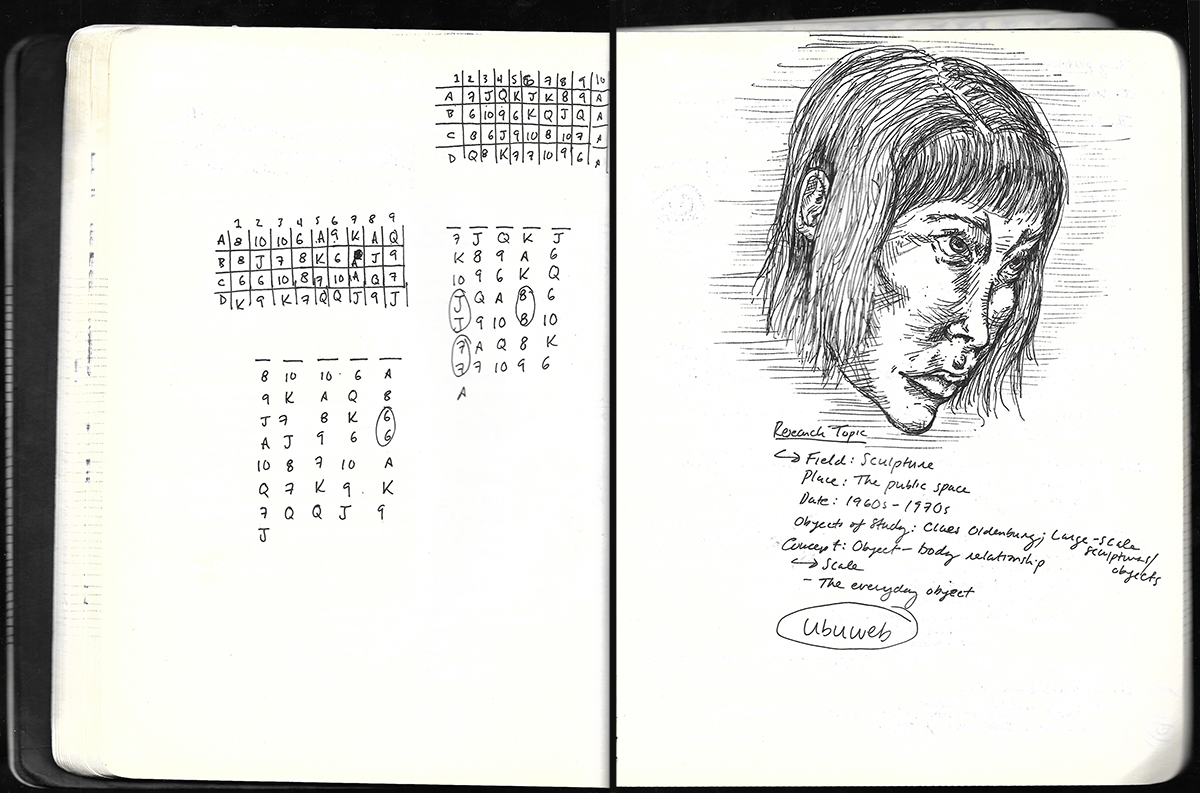 1 2 3 4 5 6 7 8 9 10
A 7 J Q K J K 8 9 A
B 6 10 9 6 K Q J Q A
C 8 6 J 9 10 8 10 7 A
D Q 8 K 7 7 10 9 6 A
1 2 3 4 5 6 7 8 9
A 8 10 10 6 A 9 K A Q
B 8 J 7 8 K 6 J 9
C 6 6 10 8 7 10 A Q 7
D K 9 K 7 Q Q J 9 J
7 J Q K J
K 8 9 A 6
10 9 6 K Q
J Q A 8 6
J 9 10 8 10
7 A Q 8 K
7 7 10 9 6
A
8 10 10 6 A
9 K A Q 8
J 7 8 K 6
A J 9 6 6
10 8 7 10 A
Q 7 K 9 K
7 Q Q J 9
J
Research Topic
↳ Field: Sculpture
Place: The public space
Date: 1960s - 1970s
Objects of Study: Claes Oldenburg; Large-scale
sculptures/
objects
Concept: Object - body relationship
↳ Scale
- The everyday object
Ubuweb